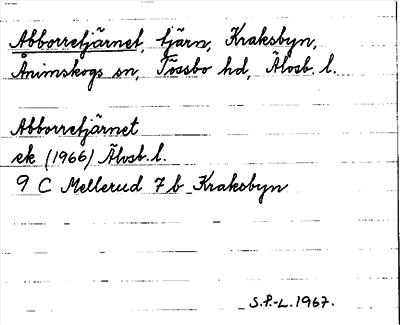 Abborretjärnet, tjärn, Kraksbyn,
Ånimskogs sn, Tössbo hd, Älvsb. l.
Abborretjärnet
ek (1966) Älvsb. l.
9 C Mellerud 7b Kraksbyn
S.P.-L. 1967.